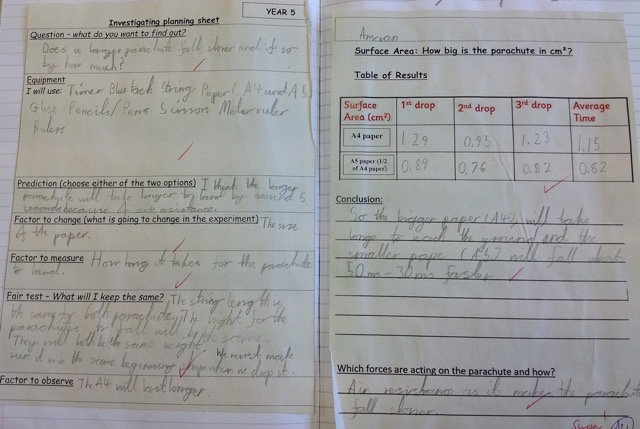 YEAR 5
Investigating planning sheet
Question - what do you want to find out?
Does a bigger parachute fall slower and if so
by how much?
Equipment
I will use: Timer Blue tack String Paper (A4 and A5)
Glue Pencils/Pens Scissors Meter ruler
Rulers
Prediction (choose either of the two options) I think the larger
parachute will take longer to land by around 5
because of air resistance.
Factor to change (what is going to change in the experiment) The size
of the paper.
Factor to measure How long it takes for the parachute
to land.
Fair test - What will I keep the same? The string length is
the same for both parachutes. The hight for the
parachutes to fall will be the same.
They will both be the same weight. We must make
sure it on the same beginning when we drop it.
Factor to observe The A4 will last longer.
Surface Area: How big is the parachute in cm²?
Table of Results
Surface Area (cm²) 1st drop 2nd drop 3rd drop Average Time
A4 paper 1.29 0.95 1.23 1.15
A5 paper (1/2 of A4 paper) 0.89 0.76 0.82 0.82
Conclusion:
So the bigger paper (A4) will take
longe to reach the ground and the
smaller paper (A5) will fall about
50 - 30 faster
Which forces are acting on the parachute and how?
Air resistance as it makes the parachute
fall slower.
Super!